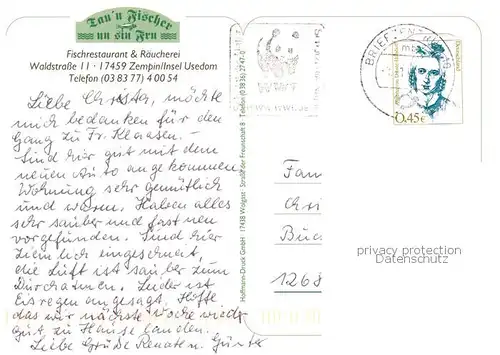 Tau'n Fischer
un sin Fru
Fischrestaurant & Räucherei
Waldstraße 11 · 17459 Zempin/Insel Usedom
Telefon (03 83 77) 4 00 54
Liebe Christa, möchte
mich bedanken für den
Gang zu Fr. Klaasen. –
Sind hier gut mit dem
neuen Auto angekommen,
Wohnung sehr gemütlich
und warm. Haben alles
sehr sauber und fast neu
vorgefunden. Sind hier
ziemlich eingeschneit,
die Luft ist sauber zum
Durchatmen. Leider ist
Eisregen angesagt. Hoffe
das wir nächste Woche wieder
gut zu Hause landen.
Liebe Grüße Renate u. Günter
Hoffmann-Druck GmbH · 17438 Wolgast · Straße der Freundschaft 8 · Telefon (0 38 36) 27 47-0
WWF
BRIEFZENTRUM
Deutschland
0,45€
Fam
Chri
Buc
1268
privacy protection
Datenschutz